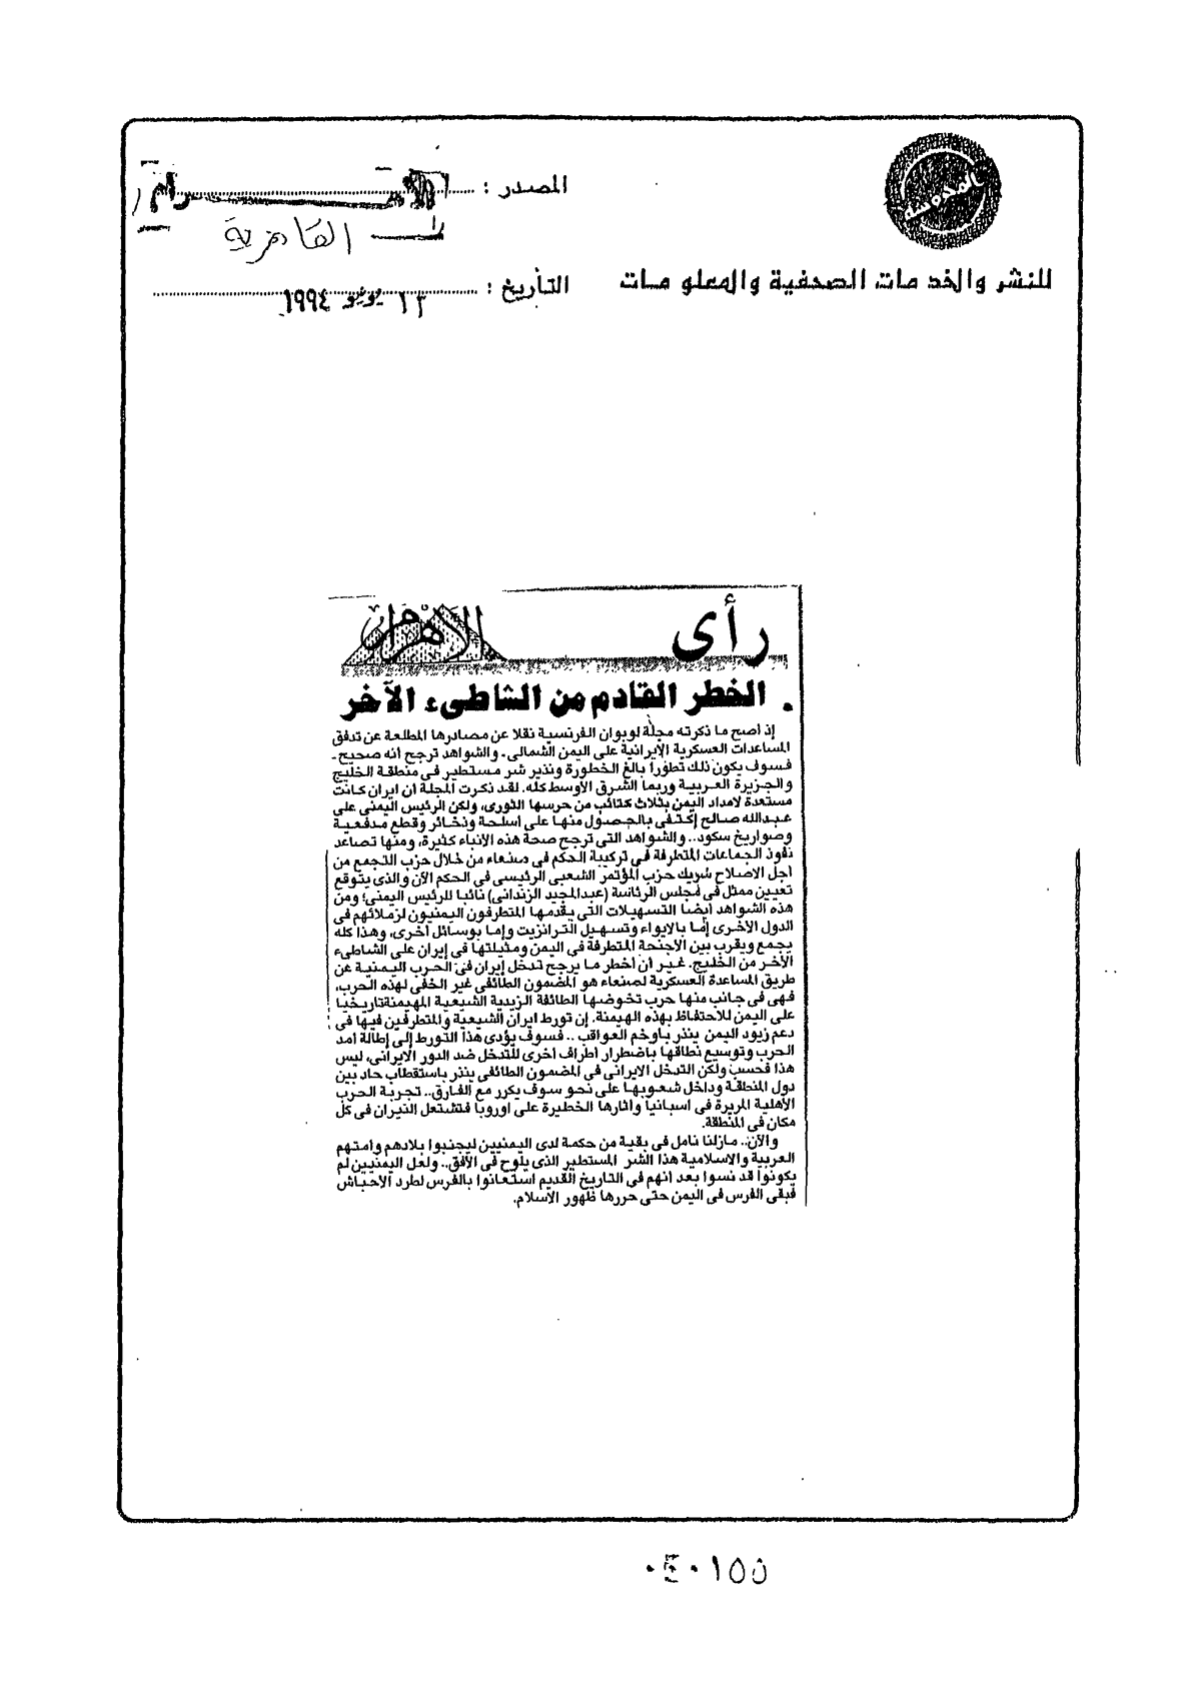 المصدر : الأهـــرام
القاهرية
للنشر والخدمات الصحفية والمعلومات
التأريخ : ١٢ يونيو ١٩٩٤
رأى
الأهرام
الخطر القادم من الشاطىء الآخر
إذ اصح ما ذكرته مجلة لوبوان الفرنسية نقلا عن مصادرها المطلعة عن تدفق
المساعدات العسكرية الإيرانية على اليمن الشمالى ـ والشواهد ترجح انه صحيح ـ
فسوف يكون ذلك تطوراً بالغ الخطورة ونذير شر مستطير فى منطقة الخليج
والجزيرة العربية وربما الشرق الأوسط كله. لقد ذكرت المجلة أن ايران كانت
مستعدة لامداد اليمن بثلاث كتائب من حرسها الثورى، ولكن الرئيس اليمنى على
عبدالله صالح إكتفى بالحصول منها على اسلحة وذخائر وقطع مدفعية
وصواريخ سكود.. والشواهد التى ترجح صحة هذه الأنباء كثيرة، ومنها تصاعد
نفوذ الجماعات المتطرفة فى تركيبة الحكم فى صنعاء من خلال حزب التجمع من
اجل الاصلاح شريك حزب المؤتمر الشعبى الرئيسى فى الحكم الآن والذى يتوقع
تعيين ممثل فى مجلس الرئاسة (عبدالمجيد الزندانى) نائبا للرئيس اليمنى؛ ومن
هذه الشواهد ايضا التسهيلات التى يقدمها المتطرفون اليمنيون لزملائهم فى
الدول الأخرى إما بالايواء وتسهيل الترانزيت وإما بوسائل أخرى، وهذا كله
يجمع ويقرب بين الاجنحة المتطرفة فى اليمن ومثيلتها فى إيران على الشاطىء
الآخر من الخليج. غير أن أخطر ما يرجح تدخل إيران فى الحرب اليمنية عن
طريق المساعدة العسكرية لصنعاء هو المضمون الطائفى غير الخفى لهذه الحرب،
فهى فى جانب منها حرب تخوضها الطائفة الزيدية الشيعية المهيمنة تاريخيا
على اليمن للاحتفاظ بهذه الهيمنة. إن تورط ايران الشيعية والمتطرفين فيها فى
دعم زيود اليمن ينذر باوخم العواقب .. فسوف يؤدى هذا التورط إلى إطالة امد
الحرب وتوسيع نطاقها باضطرار اطراف اخرى للتدخل ضد الدور الايرانى، ليس
هذا فحسب ولكن التدخل الايرانى فى المضمون الطائفى ينذر باستقطاب حاد بين
دول المنطقة وداخل شعوبها على نحو سوف يكرر مع الفارق.. تجربة الحرب
الأهلية المريرة فى اسبانيا واثارها الخطيرة على اوروبا فتشتعل النيران فى كل
مكان فى المنطقة.
والآن.. مازلنا نامل فى بقية من حكمة لدى اليمنيين ليجنبوا بلادهم وامتهم
العربية والاسلامية هذا الشر المستطير الذى يلوح فى الأفق.. ولعل اليمنيين لم
يكونوا قد نسوا بعد انهم فى التاريخ القديم استعانوا بالفرس لطرد الاحباش
فبقى الفرس فى اليمن حتى حررها ظهور الاسلام.